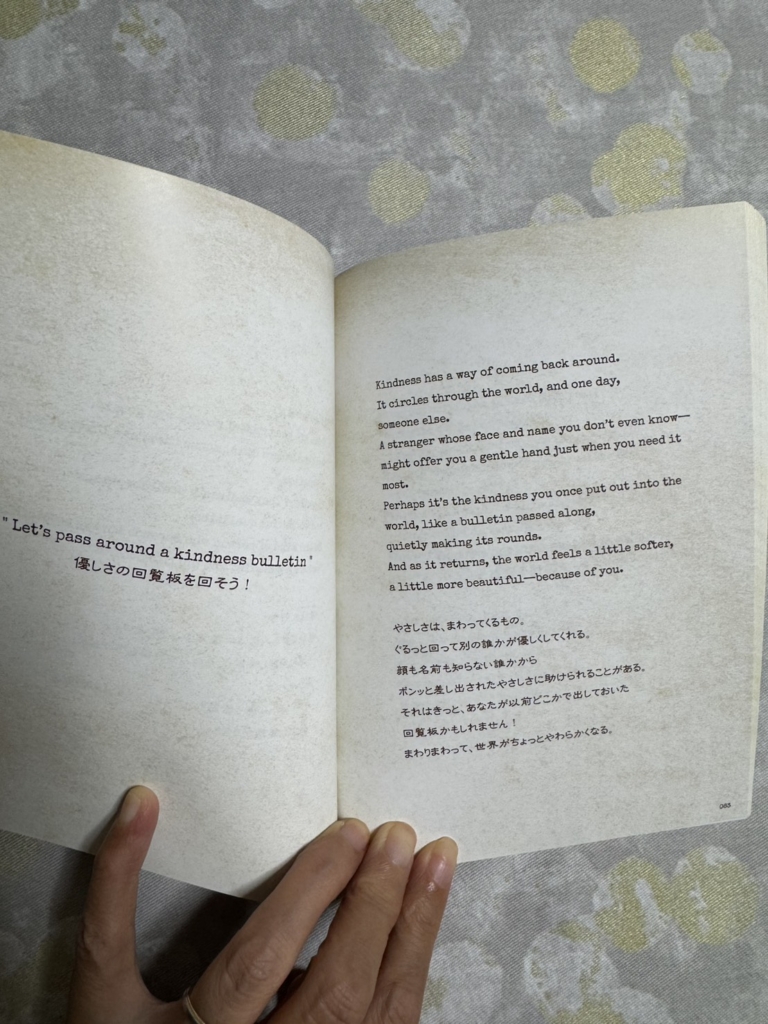 "Let's pass around a kindness bulletin"
優しさの回覧板を回そう！
Kindness has a way of coming back around.
It circles through the world, and one day,
someone else.
A stranger whose face and name you don't even know—
might offer you a gentle hand just when you need it
most.
Perhaps it's the kindness you once put out into the
world, like a bulletin passed along,
quietly making its rounds.
And as it returns, the world feels a little softer,
a little more beautiful—because of you.
やさしさは、まわってくるもの。
ぐるっと回って別の誰かが優しくしてくれる。
顔も名前も知らない誰かから
ポンッと差し出されたやさしさに助けられることがある。
それはきっと、あなたが以前どこかで出しておいた
回覧板かもしれません！
まわりまわって、世界がちょっとやわらかくなる。